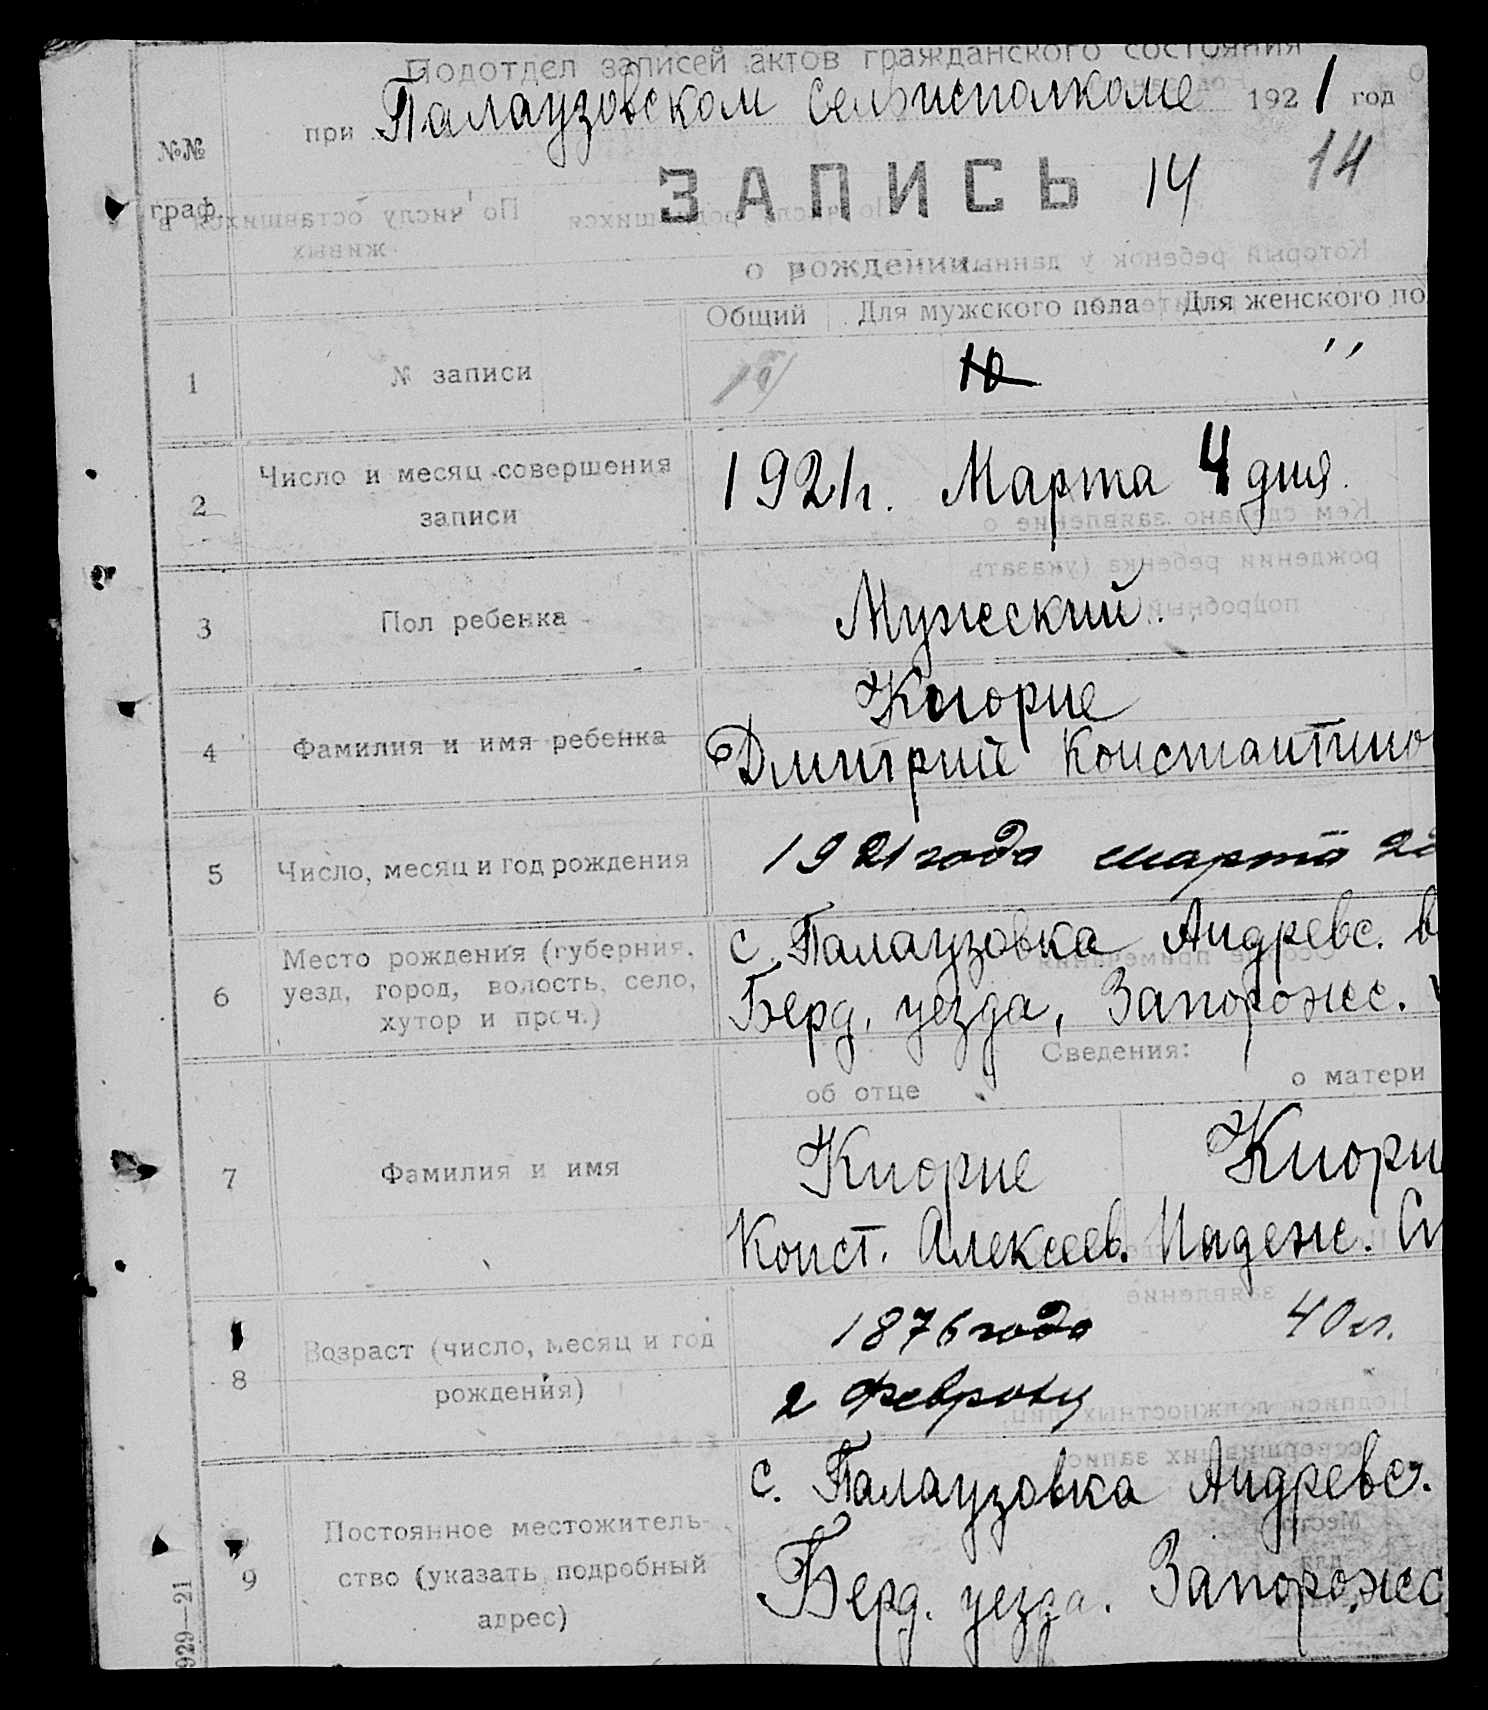 Подотдел записей актов гражданского состояния
при Палаузовском сельисполкоме 1921 год
№№
граф.
ЗАПИСЬ 14 14
о рождении
Общий Для мужского пола Для женского по
1 № записи 10 ″
2 Число и месяц совершения записи 1921г. Марта 4 дня.
3 Пол ребенка Мужеский.
4 Фамилия и имя ребенка Кюрие
Дмитрий Константино
5 Число, месяц и год рождения 1921 года марта 2
6 Место рождения (губерния, с. Палаузовка Андревс. в
уезд, город, волость, село, Берд. уезда, Запорожс.
хутор и проч.)
Сведения:
об отце о матери
7 Фамилия и имя Кюрие Кюри
Конст. Алексеев. Надеж.
8 Возраст (число, месяц и год 1876 года 40 л.
рождения) 2 февроля
с. Палаузовка Андревс.
9 Постоянное местожитель-
ство (указать подробный Берд. уезда. Запорожс.
адрес)
929—21